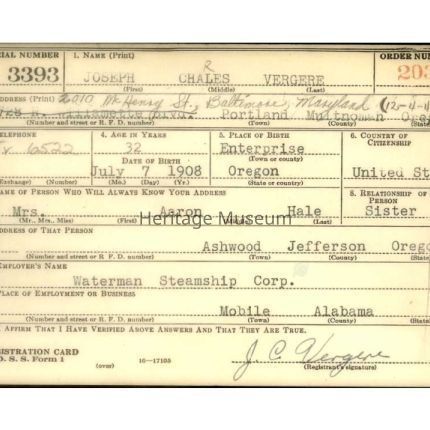 RIAL NUMBER 1. NAME (Print) ORDER NUM
3393 JOSEPH CHALES VERGERE 203
R
(First) (Middle) (Last)
ADDRESS (Print) 2010 McHenry St., Baltimore, Maryland (12-4-4
Portland Multnomah Oreg
(Number and street or R. F. D. number) (Town) (County) (State)
TELEPHONE 4. AGE IN YEARS 5. PLACE OF BIRTH 6. COUNTRY OF
CITIZENSHIP
32 Enterprise
DATE OF BIRTH (Town or county)
July 7 1908 Oregon United St
(Exchange) (Number) (Mo.) (Day) (Yr.) (State or country)
NAME OF PERSON WHO WILL ALWAYS KNOW YOUR ADDRESS 8. RELATIONSHIP OF
PERSON
Mrs. Aaron Hale Sister
(Mr., Mrs., Miss) (First) (Middle) (Last)
Heritage Museum
ADDRESS OF THAT PERSON
Ashwood Jefferson Orego
(Number and street or R. F. D. number) (Town) (County) (State)
EMPLOYER'S NAME
Waterman Steamship Corp.
PLACE OF EMPLOYMENT OR BUSINESS
Mobile Alabama
(Number and street or R. F. D. number) (Town) (County) (State)
I AFFIRM THAT I HAVE VERIFIED ABOVE ANSWERS AND THAT THEY ARE TRUE.
GISTRATION CARD J. C. Vergere
D. S. S. Form 1 16—17105
(over) (Registrant's signature)